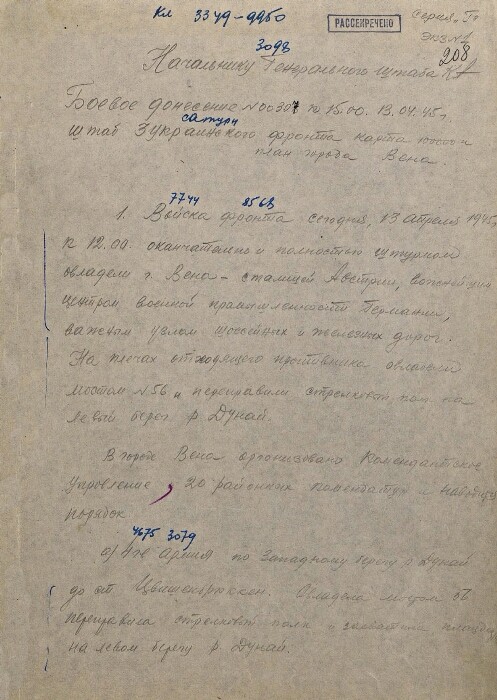 Кл 33уд-ддбо
РАССЕКРЕЧЕНО
Серия "Г"
Экз. №1
208
зодв
Начальнику Генерального штаба КА
Боевое донесение № 00307 к 15.00. 13.04.45 г.
сатурн
штаб 3 украинского фронта карта
план города Вена.
7744 8568
1. Войска фронта сегодня, 13 апреля 1945,
к 12.00. окончательно и полностью штурмом
овладели г. Вена – столицей Австрии, важнейшим
центром военной промышленности Германии,
важным узлом шоссейных и железных дорог.
На плечах отходящего противника овладели
мостом № 56 и переправили стрелковый полк на
левый берег р. Дунай.
В городе Вена организовано Комендантское
управление, 20 районных комендатур и наводится
порядок
4675 307д
а) 4 гв армия по западному берегу р Дунай
до Овладела мостом 56
переправила стрелковый полк и захватила плацдарм
на левом берегу р. Дунай.